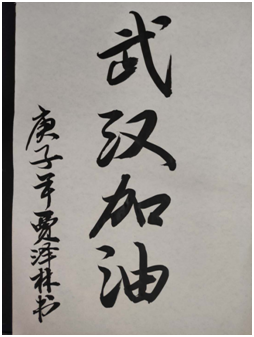 武汉加油
庚子年贾泽林书